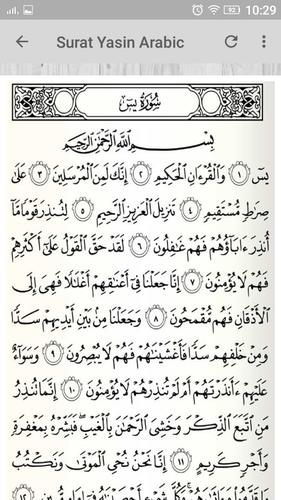 10:29
92
Surat Yasin Arabic
سُورَةُ يسٓ
بِسْمِ اللَّهِ الرَّحْمَٰنِ الرَّحِيمِ
يسٓ ١ وَالْقُرْءَانِ الْحَكِيمِ ٢ إِنَّكَ لَمِنَ الْمُرْسَلِينَ ٣ عَلَىٰ
صِرَٰطٍ مُّسْتَقِيمٍ ٤ تَنزِيلَ الْعَزِيزِ الرَّحِيمِ ٥ لِتُنذِرَ قَوْمًا مَّا
أُنذِرَ ءَابَآؤُهُمْ فَهُمْ غَٰفِلُونَ ٦ لَقَدْ حَقَّ الْقَوْلُ عَلَىٰٓ أَكْثَرِهِمْ
فَهُمْ لَا يُؤْمِنُونَ ٧ إِنَّا جَعَلْنَا فِىٓ أَعْنَٰقِهِمْ أَغْلَٰلًا فَهِىَ إِلَى
الْأَذْقَانِ فَهُم مُّقْمَحُونَ ٨ وَجَعَلْنَا مِنۢ بَيْنِ أَيْدِيهِمْ سَدًّا
وَمِنْ خَلْفِهِمْ سَدًّا فَأَغْشَيْنَٰهُمْ فَهُمْ لَا يُبْصِرُونَ ٩ وَسَوَآءٌ
عَلَيْهِمْ ءَأَنذَرْتَهُمْ أَمْ لَمْ تُنذِرْهُمْ لَا يُؤْمِنُونَ ١٠ إِنَّمَا تُنذِرُ
مَنِ اتَّبَعَ الذِّكْرَ وَخَشِىَ الرَّحْمَٰنَ بِالْغَيْبِ فَبَشِّرْهُ بِمَغْفِرَةٍ
وَأَجْرٍ كَرِيمٍ ١١ إِنَّا نَحْنُ نُحْىِ الْمَوْتَىٰ وَنَكْتُبُ